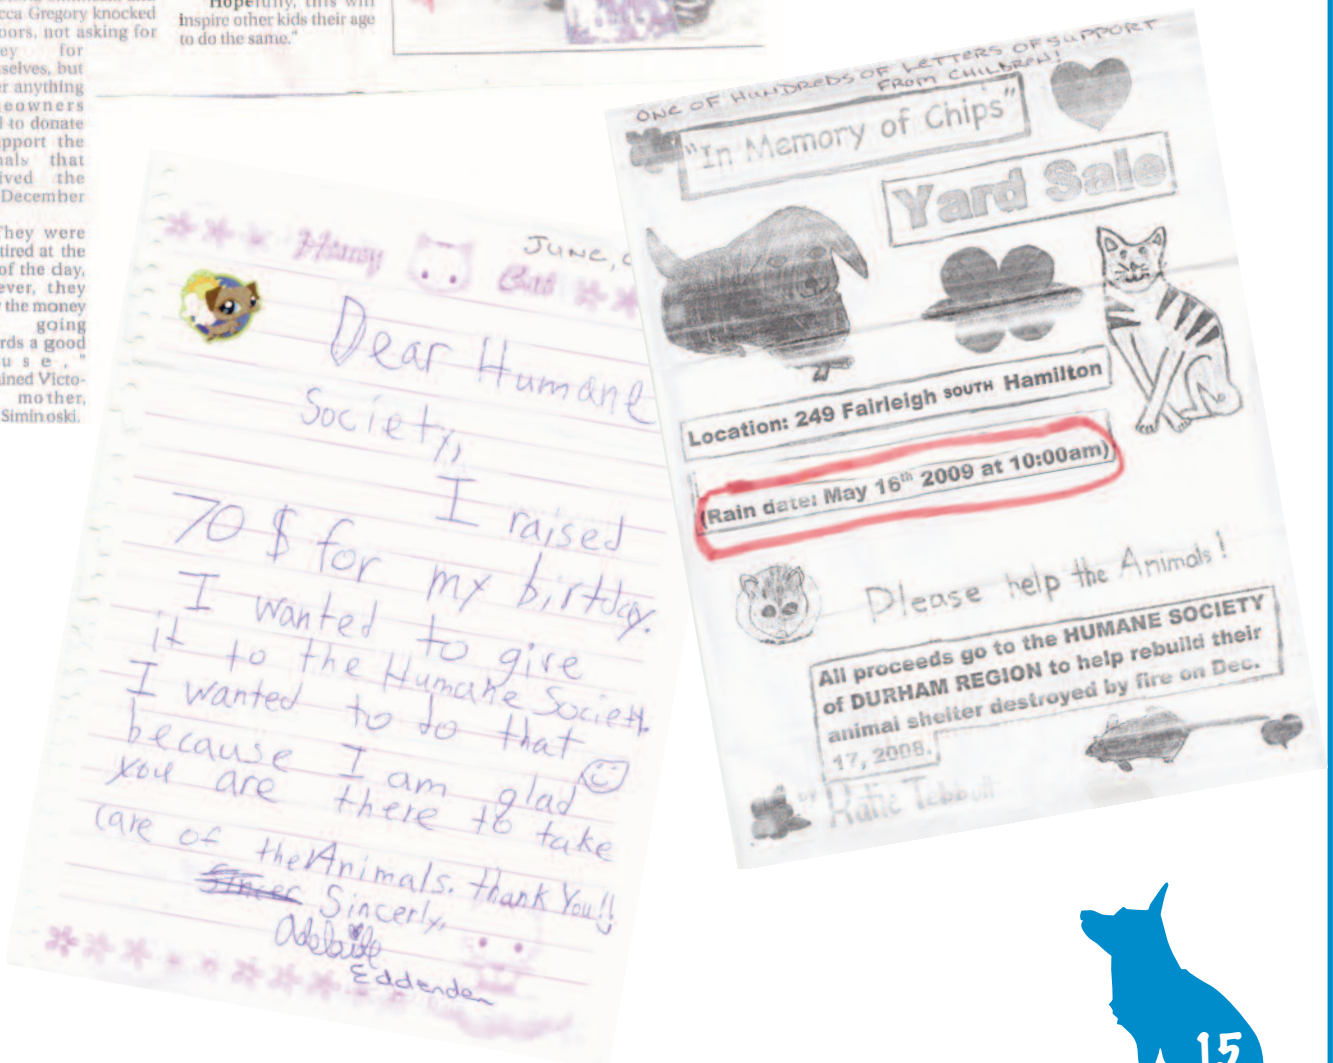 cca Gregory knocked
oors, not asking for
ey for
selves, but
er anything
eowners
to donate
pport the
als that
ived the
December
They were
tired at the
of the day,
ever, they
the money
going
rds a good
u s e , "
ined Victo-
mother,
Siminoski.
"Hopefully, this will
inspire other kids their age
to do the same."
JUNE,
Dear Humane
Society,
I raised
70 $ for my birtday.
I wanted to give
it to the Humane Society.
I wanted to do that
because I am glad
you are there to take
care of the Animals. thank You!!
Sincerly,
Adelaide
Eddenden
ONE OF HUNDREDS OF LETTERS OF SUPPORT
FROM CHILDREN!
"In Memory of Chips"
Yard Sale
Location: 249 Fairleigh SOUTH Hamilton
(Rain date: May 16th 2009 at 10:00am)
Please help the Animals!
All proceeds go to the HUMANE SOCIETY
of DURHAM REGION to help rebuild their
animal shelter destroyed by fire on Dec.
17, 2008.
BY Katie Tebbutt
15